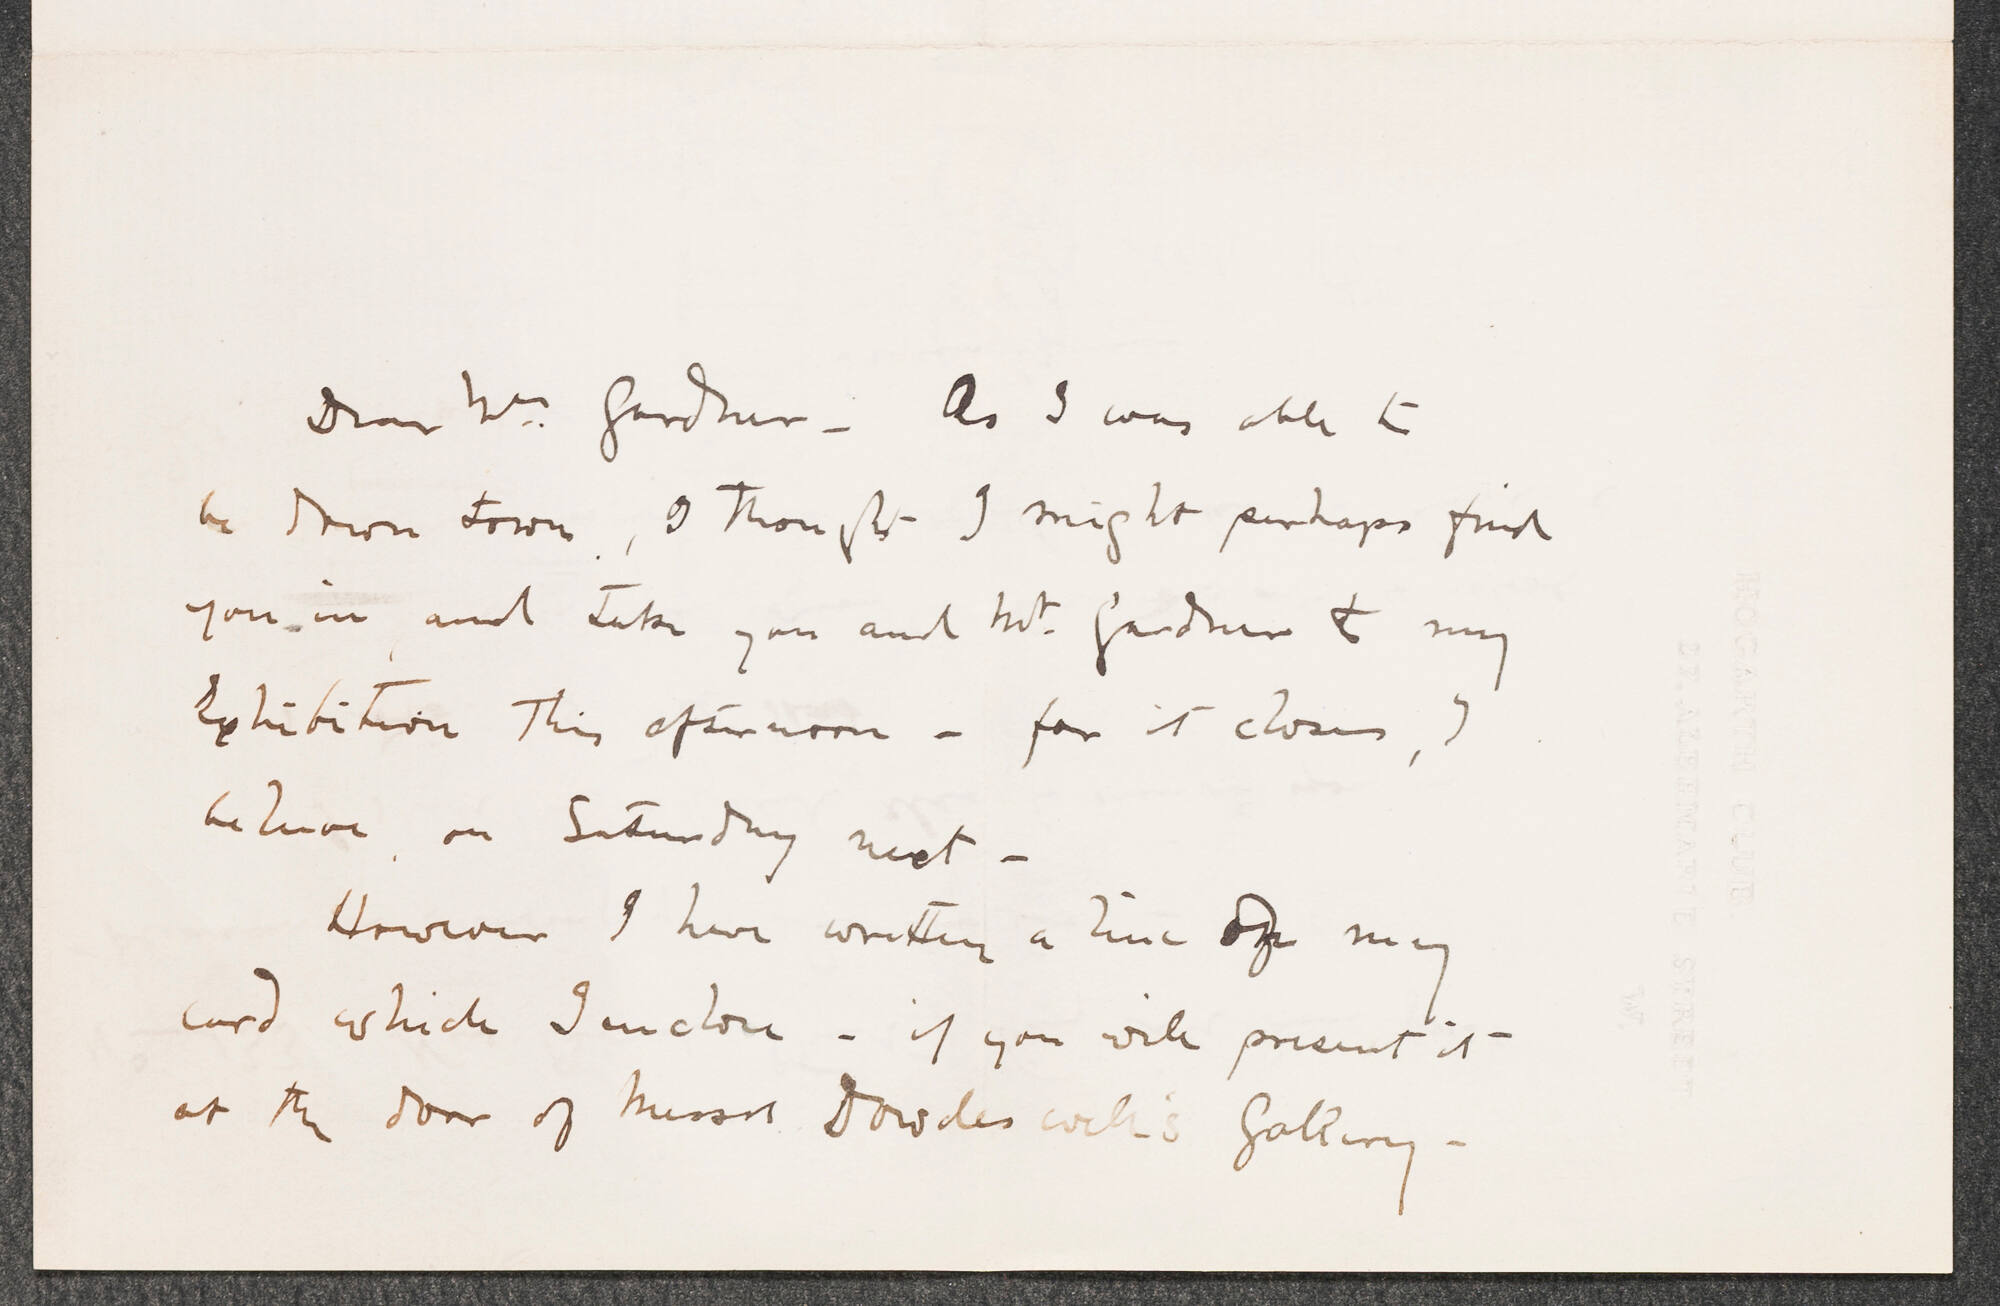 Dear Mrs. Gardner - As I was able to
be down town, I thought I might perhaps find
you in and take you and Mr. Gardner to my
Exhibition this afternoon - for it closes, I
believe, on Saturday next -
However I have written a line on my
card which I enclose - if you will present it
at the door of Messrs Dowdeswell's Gallery -
HOGARTH CLUB.
27. ALBEMARLE STREET
W.